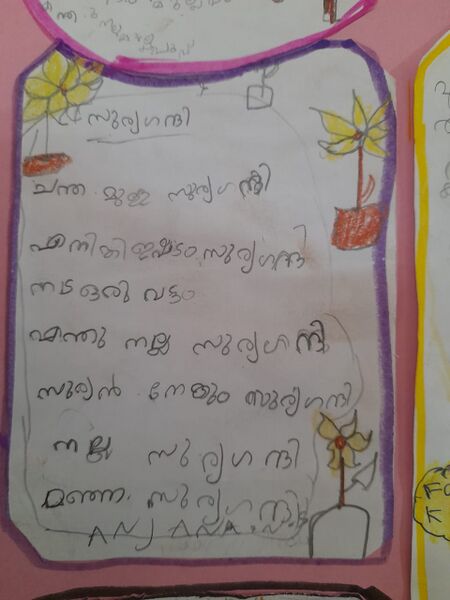 സൂര്യഗന്ധി
ചന്ത മുള്ള സൂര്യഗന്ധി
എനിക്കിഇഷ്ടം സൂര്യഗന്ധി
നട ഒരു വട്ടം
എന്തു നല്ല സൂര്യഗന്ധി
സൂര്യൻ നേക്കും സൂര്യഗന്ധി
നല്ല സൂര്യഗന്ധി
മഞ്ഞ സൂര്യഗന്ധി
ANJANA